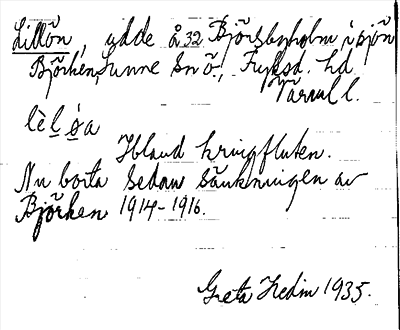 Lillön, udde å 32 Björsbyholm, i sjön
Björken, Sunne sn ö., Fryksd. hd
Värml l.
lèl ø̀a
Ibland kringfluten.
Nu borta sedan sänkningen av
Björken 1914-1916.
Greta Hedin 1935.